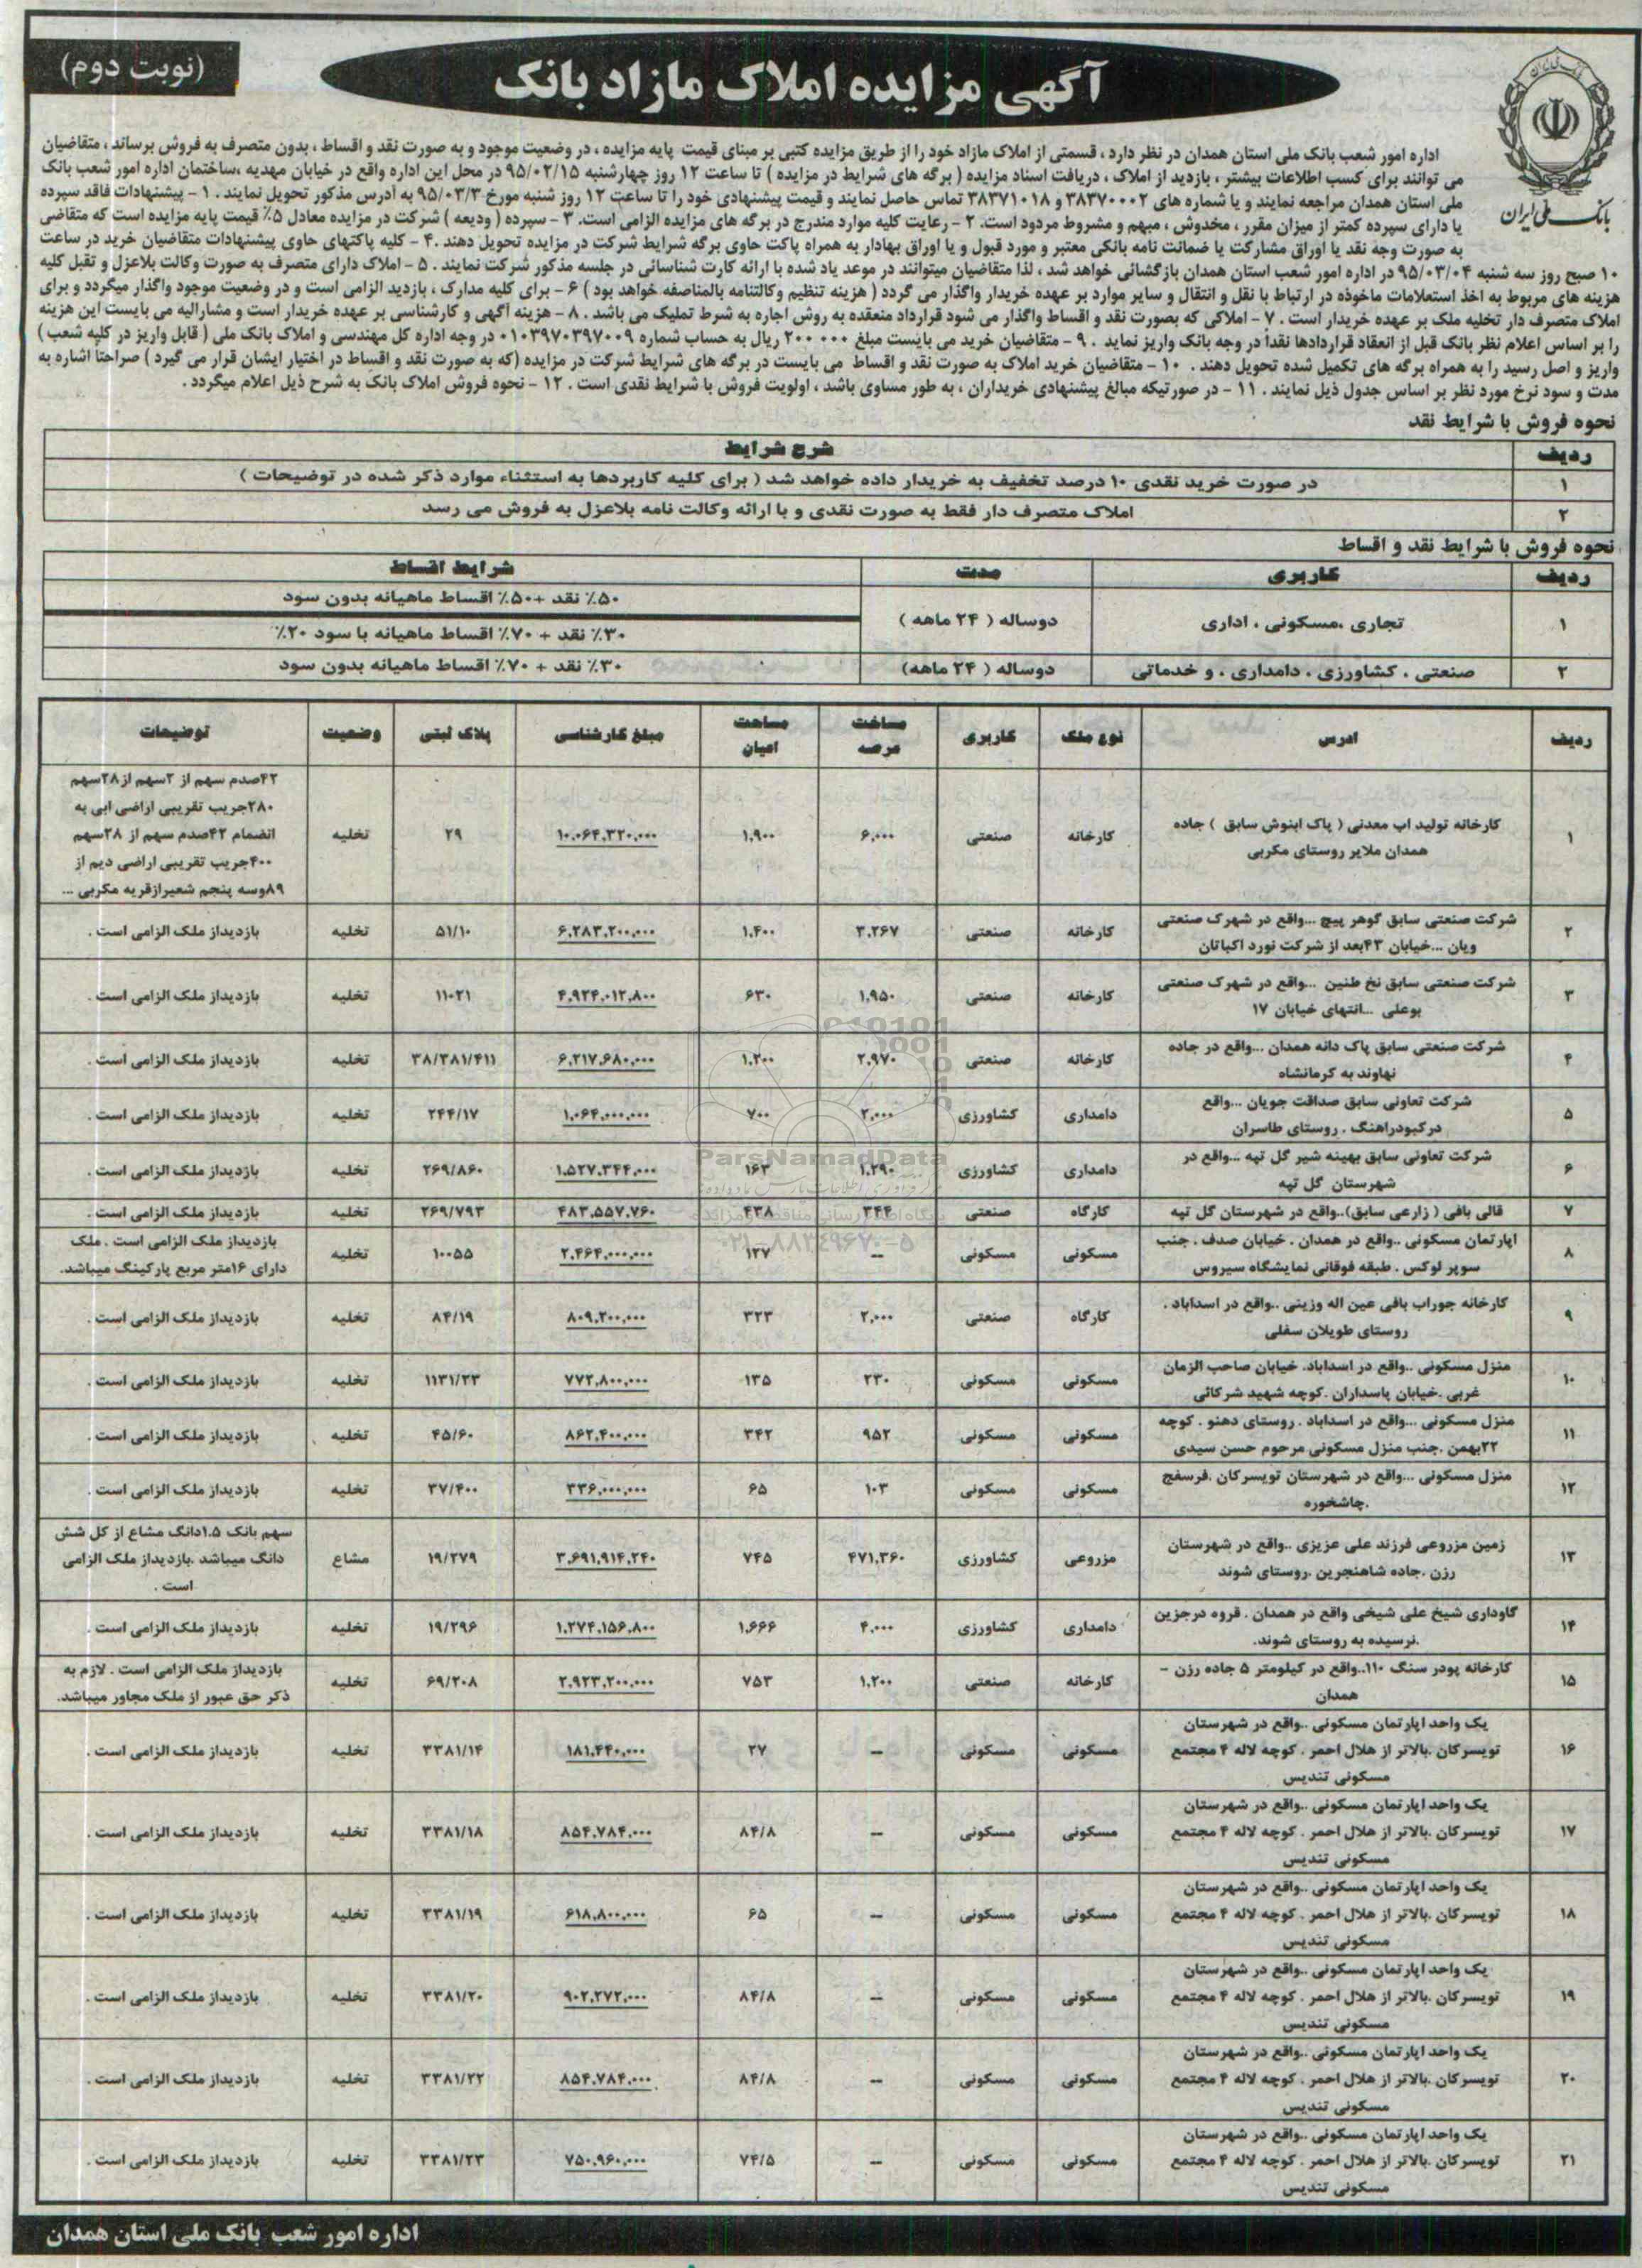 آگهی مزایده املاک مازاد بانک
(نوبت دوم)
بانک ملی ایران
اداره امور شعب بانک ملی استان همدان در نظر دارد ، قسمتی از املاک مازاد خود را از طریق مزایده کتبی بر مبنای قیمت پایه مزایده ، در وضعیت موجود و به صورت نقد و اقساط ، بدون متصرف به فروش برساند ، متقاضیان
می توانند برای کسب اطلاعات بیشتر ، بازدید از املاک ، دریافت اسناد مزایده ( برگه های شرایط در مزایده ) تا ساعت ۱۲ روز چهارشنبه ۹۵/۰۲/۱۵ در محل این اداره واقع در خیابان مهدیه ،ساختمان اداره امور شعب بانک
ملی استان همدان مراجعه نمایند و یا شماره های ۳۸۳۷۰۰۰۲ و ۳۸۳۷۱۰۱۸ تماس حاصل نمایند و قیمت پیشنهادی خود را تا ساعت ۱۲ روز شنبه مورخ ۹۵/۰۳/۳ به آدرس مذکور تحویل نمایند . ۱ - پیشنهادات فاقد سپرده
یا دارای سپرده کمتر از میزان مقرر ، مخدوش ، مبهم و مشروط مردود است. ۲ - رعایت کلیه موارد مندرج در برگه های مزایده الزامی است. ۳ - سپرده ( ودیعه ) شرکت در مزایده معادل ۵٪ قیمت پایه مزایده است که متقاضی
به صورت وجه نقد یا اوراق مشارکت یا ضمانت نامه بانکی معتبر و مورد قبول و یا اوراق بهادار به همراه پاکت حاوی برگه شرایط شرکت در مزایده تحویل دهند .۴ - کلیه پاکتهای حاوی پیشنهادات متقاضیان خرید در ساعت
۱۰ صبح روز سه شنبه ۹۵/۰۳/۰۴ در اداره امور شعب استان همدان بازگشائی خواهد شد ، لذا متقاضیان میتوانند در موعد یاد شده با ارائه کارت شناسائی در جلسه مذکور شرکت نمایند . ۵ - املاک دارای متصرف به صورت وکالت بلاعزل و تقبل کلیه
هزینه های مربوط به اخذ استعلامات ماخوذه در ارتباط با نقل و انتقال و سایر موارد بر عهده خریدار واگذار می گردد ( هزینه تنظیم وکالتنامه بالمناصفه خواهد بود ) ۶ - برای کلیه مدارک ، بازدید الزامی است و در وضعیت موجود واگذار میگردد و برای
املاک متصرف دار تخلیه ملک بر عهده خریدار است . ۷ - املاکی که بصورت نقد و اقساط واگذار می شود قرارداد منعقده به روش اجاره به شرط تملیک می باشد . ۸ - هزینه آگهی و کارشناسی بر عهده خریدار است و مشارالیه می بایست این هزینه
را بر اساس اعلام نظر بانک قبل از انعقاد قراردادها نقداً در وجه بانک واریز نماید . ۹ - متقاضیان خرید می بایست مبلغ ۲۰۰ ۰۰۰ ریال به حساب شماره ۰۱۰۳۹۷۰۳۹۷۰۰۹ در وجه اداره کل مهندسی و املاک بانک ملی ( قابل واریز در کلیه شعب )
واریز و اصل رسید را به همراه برگه های تکمیل شده تحویل دهند . ۱۰ - متقاضیان خرید املاک به صورت نقد و اقساط می بایست در برگه های شرایط شرکت در مزایده (که به صورت نقد و اقساط در اختیار ایشان قرار می گیرد ) صراحتاً اشاره به
مدت و سود نرخ مورد نظر بر اساس جدول ذیل نمایند . ۱۱ - در صورتیکه مبالغ پیشنهادی خریداران ، به طور مساوی باشد ، اولویت فروش با شرایط نقدی است . ۱۲ - نحوه فروش املاک بانک به شرح ذیل اعلام میگردد .
نحوه فروش با شرایط نقد
ردیف شرح شرایط
۱ در صورت خرید نقدی ۱۰ درصد تخفیف به خریدار داده خواهد شد ( برای کلیه کاربردها به استثناء موارد ذکر شده در توضیحات )
۲ املاک متصرف دار فقط به صورت نقدی و با ارائه وکالت نامه بلاعزل به فروش می رسد
نحوه فروش با شرایط نقد و اقساط
ردیف کاربری مدت شرایط اقساط
۱ تجاری ،مسکونی ، اداری دوساله ( ۲۴ ماهه ) ۵۰٪ نقد +۵۰٪ اقساط ماهیانه بدون سود
۳۰٪ نقد + ۷۰٪ اقساط ماهیانه با سود ۲۰٪
۲ صنعتی ، کشاورزی ، دامداری ، و خدماتی دوساله ( ۲۴ ماهه) ۳۰٪ نقد + ۷۰٪ اقساط ماهیانه بدون سود
ردیف ادرس نوع ملک کاربری مساحت عرصه مساحت اعیان مبلغ کارشناسی پلاک ثبتی وضعیت توضیحات
۱ کارخانه تولید اب معدنی ( پاک ابنوش سابق ) جاده
همدان ملایر روستای مکربی کارخانه صنعتی ۶,۰۰۰ ۱,۹۰۰ ۱۰,۰۶۴,۳۲۰,۰۰۰ ۲۹ تخلیه
۴۲صدم سهم از ۲سهم از۲۸سهم
۲۸۰جریب تقریبی اراضی ابی به
انضمام ۴۲صدم سهم از ۲۸سهم
۴۰۰جریب تقریبی اراضی دیم از
۸۹وسه پنجم شعیرازقریه مکربی ...
۲ شرکت صنعتی سابق گوهر پیچ ...واقع در شهرک صنعتی
ویان ...خیابان ۴۳بعد از شرکت نورد اکباتان کارخانه صنعتی ۳,۲۶۷ ۱,۴۰۰ ۶,۲۸۳,۲۰۰,۰۰۰ ۵۱/۱۰ تخلیه بازدیداز ملک الزامی است .
۳ شرکت صنعتی سابق نخ طنین ...واقع در شهرک صنعتی
بوعلی ...انتهای خیابان ۱۷ کارخانه صنعتی ۱,۹۵۰ ۶۳۰ ۴,۹۲۴,۰۱۲,۸۰۰ ۱۱۰۲۱ تخلیه بازدیداز ملک الزامی است .
۴ شرکت صنعتی سابق پاک دانه همدان ...واقع در جاده
نهاوند به کرمانشاه کارخانه صنعتی ۲,۹۷۰ ۱,۲۰۰ ۶,۲۱۷,۶۸۰,۰۰۰ ۳۸/۳۸۱/۴۱۱ تخلیه بازدیداز ملک الزامی است .
۵ شرکت تعاونی سابق صداقت جویان ...واقع
درکبودراهنگ . روستای طاسران دامداری کشاورزی ۲,۰۰۰ ۷۰۰ ۱,۰۶۴,۰۰۰,۰۰۰ ۲۴۴/۱۷ تخلیه بازدیداز ملک الزامی است .
۶ شرکت تعاونی سابق بهینه شیر گل تپه ...واقع در
شهرستان گل تپه دامداری کشاورزی ۱,۲۹۰ ۱۶۳ ۱,۵۲۷,۳۴۴,۰۰۰ ۲۶۹/۸۶۰ تخلیه بازدیداز ملک الزامی است .
۷ قالی بافی ( زارعی سابق)..واقع در شهرستان گل تپه کارگاه صنعتی ۳۴۴ ۴۳۸ ۴۸۳,۵۵۷,۷۶۰ ۲۶۹/۷۹۳ تخلیه بازدیداز ملک الزامی است .
۸ اپارتمان مسکونی ..واقع در همدان . خیابان صدف . جنب
سوپر لوکس . طبقه فوقانی نمایشگاه سیروس مسکونی مسکونی -- ۱۲۷ ۲,۴۶۴,۰۰۰,۰۰۰ ۱۰۰۵۵ تخلیه بازدیداز ملک الزامی است . ملک
دارای ۱۶متر مربع پارکینگ میباشد.
۹ کارخانه جوراب بافی عین اله وزینی ..واقع در اسداباد .
روستای طویلان سفلی کارگاه صنعتی ۲,۰۰۰ ۳۲۳ ۸۰۹,۲۰۰,۰۰۰ ۸۴/۱۹ تخلیه بازدیداز ملک الزامی است .
۱۰ منزل مسکونی ..واقع در اسداباد. خیابان صاحب الزمان
غربی .خیابان پاسداران .کوچه شهید شرکائی مسکونی مسکونی ۲۳۰ ۱۳۵ ۷۷۲,۸۰۰,۰۰۰ ۱۱۳۱/۲۳ تخلیه بازدیداز ملک الزامی است .
۱۱ منزل مسکونی ...واقع در اسداباد . روستای دهنو . کوچه
۲۲بهمن .جنب منزل مسکونی مرحوم حسن سیدی مسکونی مسکونی ۹۵۲ ۳۴۲ ۸۶۲,۴۰۰,۰۰۰ ۴۵/۶۰ تخلیه بازدیداز ملک الزامی است .
۱۲ منزل مسکونی ...واقع در شهرستان تویسرکان .فرسفج
.چاشخوره مسکونی مسکونی ۱۰۳ ۶۵ ۳۳۶,۰۰۰,۰۰۰ ۳۷/۴۰۰ تخلیه بازدیداز ملک الزامی است .
۱۳ زمین مزروعی فرزند علی عزیزی ..واقع در شهرستان
رزن .جاده شاهنجرین .روستای شوند مزروعی کشاورزی ۴۷۱,۳۶۰ ۷۴۵ ۳,۶۹۱,۹۱۴,۲۴۰ ۱۹/۲۷۹ مشاع سهم بانک ۱.۵دانگ مشاع از کل شش
دانگ میباشد .بازدیداز ملک الزامی
است .
۱۴ گاوداری شیخ علی شیخی واقع در همدان . قروه درجزین
.نرسیده به روستای شوند. دامداری کشاورزی ۴,۰۰۰ ۱,۶۶۶ ۱,۲۷۴,۱۵۶,۸۰۰ ۱۹/۲۹۶ تخلیه بازدیداز ملک الزامی است .
۱۵ کارخانه پودر سنگ ۱۱۰..واقع در کیلومتر ۵ جاده رزن -
همدان کارخانه صنعتی ۱,۲۰۰ ۷۵۳ ۲,۹۲۳,۲۰۰,۰۰۰ ۶۹/۲۰۸ تخلیه بازدیداز ملک الزامی است . لازم به
ذکر حق عبور از ملک مجاور میباشد.
۱۶ یک واحد اپارتمان مسکونی ..واقع در شهرستان
تویسرکان .بالاتر از هلال احمر . کوچه لاله ۴ مجتمع
مسکونی تندیس مسکونی مسکونی -- ۲۷ ۱۸۱,۴۴۰,۰۰۰ ۳۳۸۱/۱۴ تخلیه بازدیداز ملک الزامی است .
۱۷ یک واحد اپارتمان مسکونی ..واقع در شهرستان
تویسرکان .بالاتر از هلال احمر . کوچه لاله ۴ مجتمع
مسکونی تندیس مسکونی مسکونی -- ۸۴/۸ ۸۵۴,۷۸۴,۰۰۰ ۳۳۸۱/۱۸ تخلیه بازدیداز ملک الزامی است .
۱۸ یک واحد اپارتمان مسکونی ..واقع در شهرستان
تویسرکان .بالاتر از هلال احمر . کوچه لاله ۴ مجتمع
مسکونی تندیس مسکونی مسکونی -- ۶۵ ۶۱۸,۸۰۰,۰۰۰ ۳۳۸۱/۱۹ تخلیه بازدیداز ملک الزامی است .
۱۹ یک واحد اپارتمان مسکونی ..واقع در شهرستان
تویسرکان .بالاتر از هلال احمر . کوچه لاله ۴ مجتمع
مسکونی تندیس مسکونی مسکونی -- ۸۴/۸ ۹۰۲,۲۷۲,۰۰۰ ۳۳۸۱/۲۰ تخلیه بازدیداز ملک الزامی است .
۲۰ یک واحد اپارتمان مسکونی ..واقع در شهرستان
تویسرکان .بالاتر از هلال احمر . کوچه لاله ۴ مجتمع
مسکونی تندیس مسکونی مسکونی -- ۸۴/۸ ۸۵۴,۷۸۴,۰۰۰ ۳۳۸۱/۲۲ تخلیه بازدیداز ملک الزامی است .
۲۱ یک واحد اپارتمان مسکونی ..واقع در شهرستان
تویسرکان .بالاتر از هلال احمر . کوچه لاله ۴ مجتمع
مسکونی تندیس مسکونی مسکونی -- ۷۴/۵ ۷۵۰,۹۶۰,۰۰۰ ۳۳۸۱/۲۳ تخلیه بازدیداز ملک الزامی است .
ParsNamadData
۰۲۱-۸۸۳۴۹۶۷۰-۵
اداره امور شعب بانک ملی استان همدان